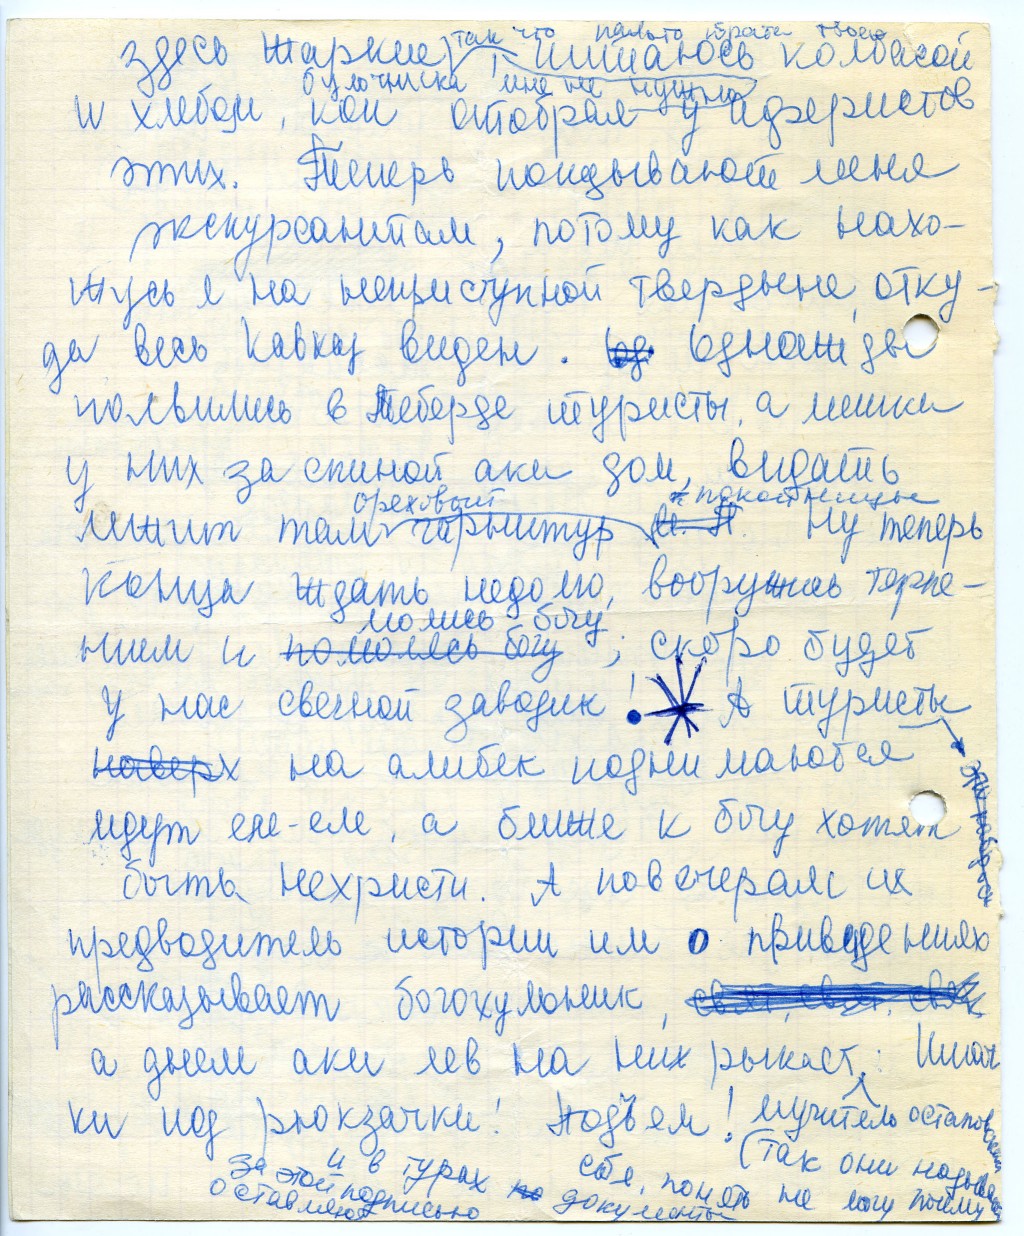 здесь жаркие, так что пальто брата твоего
булочника мне не нужно! Питаюсь колбасой
и хлебом, кои отобрал у аферистов
этих. Теперь показывают меня
экскурсантам, потому как нахо-
жусь я на неприступной твердыне, отку-
да весь Кавказ виден. Однажды
появились в Теберде туристы, а мешки
у них за спиной аки дом, видать
лежит там ореховый гарнитур покойницы. Ну теперь
конца ждать недолго, вооружись терпе-
нием и молись богу; скоро будет
у нас свечной заводик! А туристы
наверх на алибек поднимаются
идут еле-еле, а ближе к богу хотят
быть нехристи. А по вечерам их
предводитель истории им о приведениях
рассказывает богохульник, свят, свят, свят
а днем аки лев на них рыкает: Ишач
ки под рюкзачки! Подъем! мучитель остапов
(так они называют
себя, понять не могу почему
и в турах документы
за этой подписью
оставляют